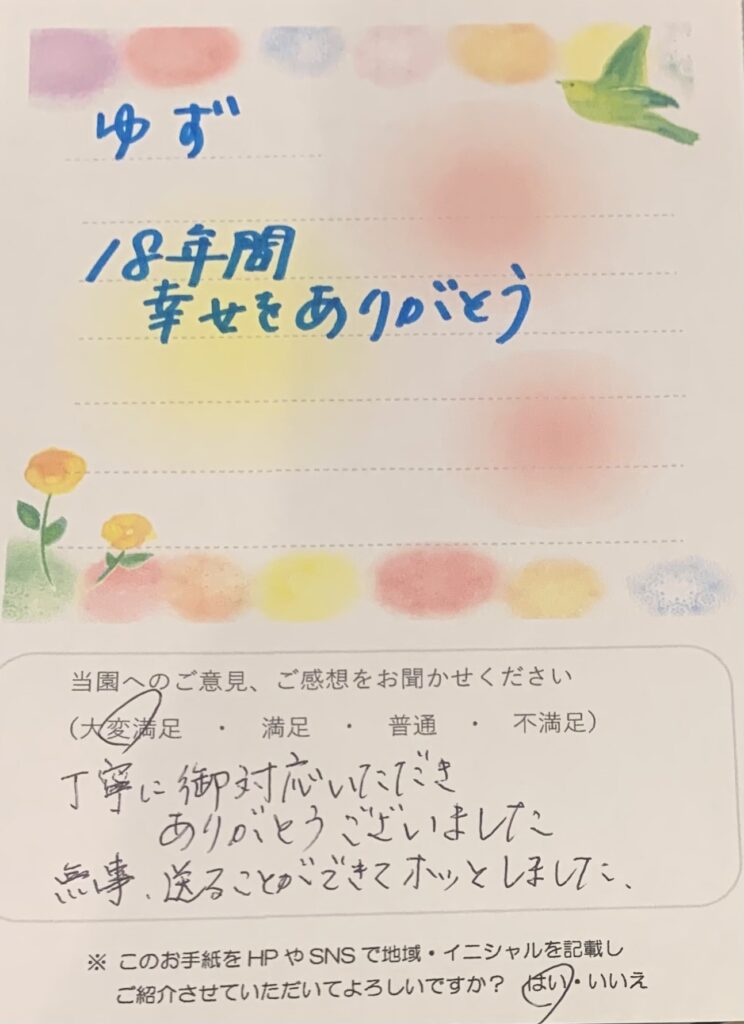 ゆず
18年間
幸せをありがとう
当園へのご意見、ご感想をお聞かせください
（大変満足 ・ 満足 ・ 普通 ・ 不満足）
丁寧に御対応いただき
ありがとうございました
無事、送ることができてホッとしました、
※ このお手紙をHPやSNSで地域・イニシャルを記載し
ご紹介させていただいてよろしいですか？ はい・いいえ